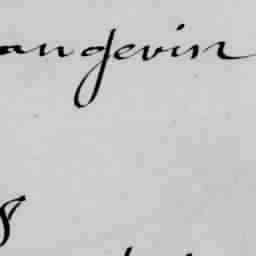 angevin
8